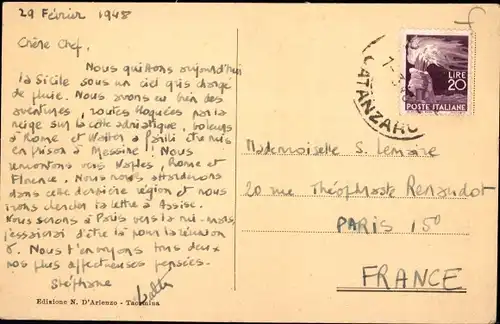 29 Février 1948
Chère Chef,
Nous quittons aujourd'hui
la Sicile sous un ciel gris chargé
de pluie. Nous avons eu bien des
aventures, routes bloquées par la
neige sur la côte adriatique, voleurs
à Rome et Walter a failli être mis
en prison à Messine! Nous
remontons vers Naples, Rome et
Florence. Nous nous attarderons
dans cette dernière région et nous
irons chercher ta lettre à Assise.
Nous serons à Paris vers la mi-mars,
j'essaierai d'être là pour la réunion
. Nous t'envoyons tous deux
nos plus affectueuses pensées.
Stéphane
Walter
Edizione N. D'Arienzo - Taormina
CATANZARO
LIRE
20
POSTE ITALIANE
Mademoiselle S. Lemaire
20 rue Théophraste Renaudot
PARIS 15º
FRANCE